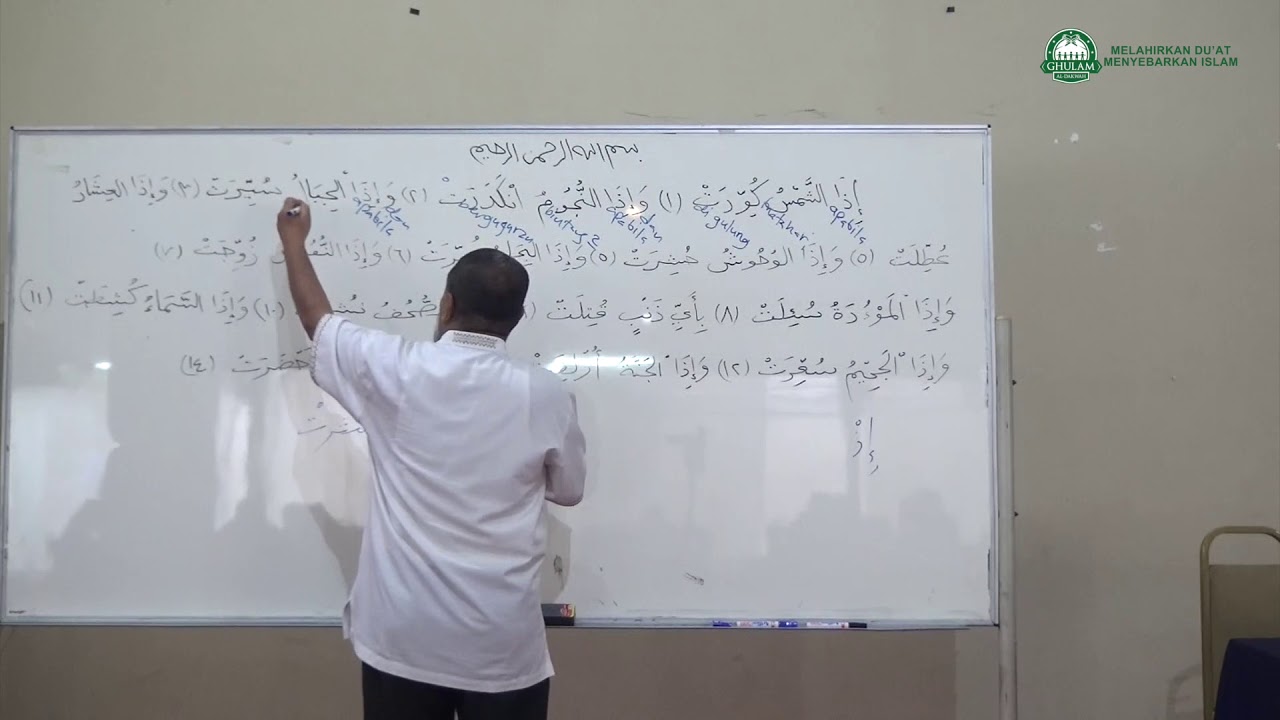 GHULAM
AL-DAKWAH
MELAHIRKAN DU'AT
MENYEBARKAN ISLAM
بسم الله الرحمن الرحيم
إِذَا الشَّمْسُ كُوِّرَتْ (١) وَإِذَا النُّجُومُ انْكَدَرَتْ (٢) وَإِذَا الْجِبَالُ سُيِّرَتْ (٣) وَإِذَا الْعِشَارُ
apabila matahari digulung dan apabila bintang2 dan apabila
عُطِّلَتْ (٥) وَإِذَا الْوُحُوشُ حُشِرَتْ (٥) وَإِذَا الْبِحَارُ (٦) وَإِذَا زُوِّجَتْ (٧)
وَإِذَا الْمَوْءُدَةُ سُئِلَتْ (٨) بِأَيِّ ذَنْبٍ قُتِلَتْ (١٠) وَإِذَا السَّمَاءُ كُشِطَتْ (١١)
وَإِذَا الْجَحِيمُ سُعِّرَتْ (١٢) وَإِذَا الْجَنَّةُ (١٤)
إِذْ